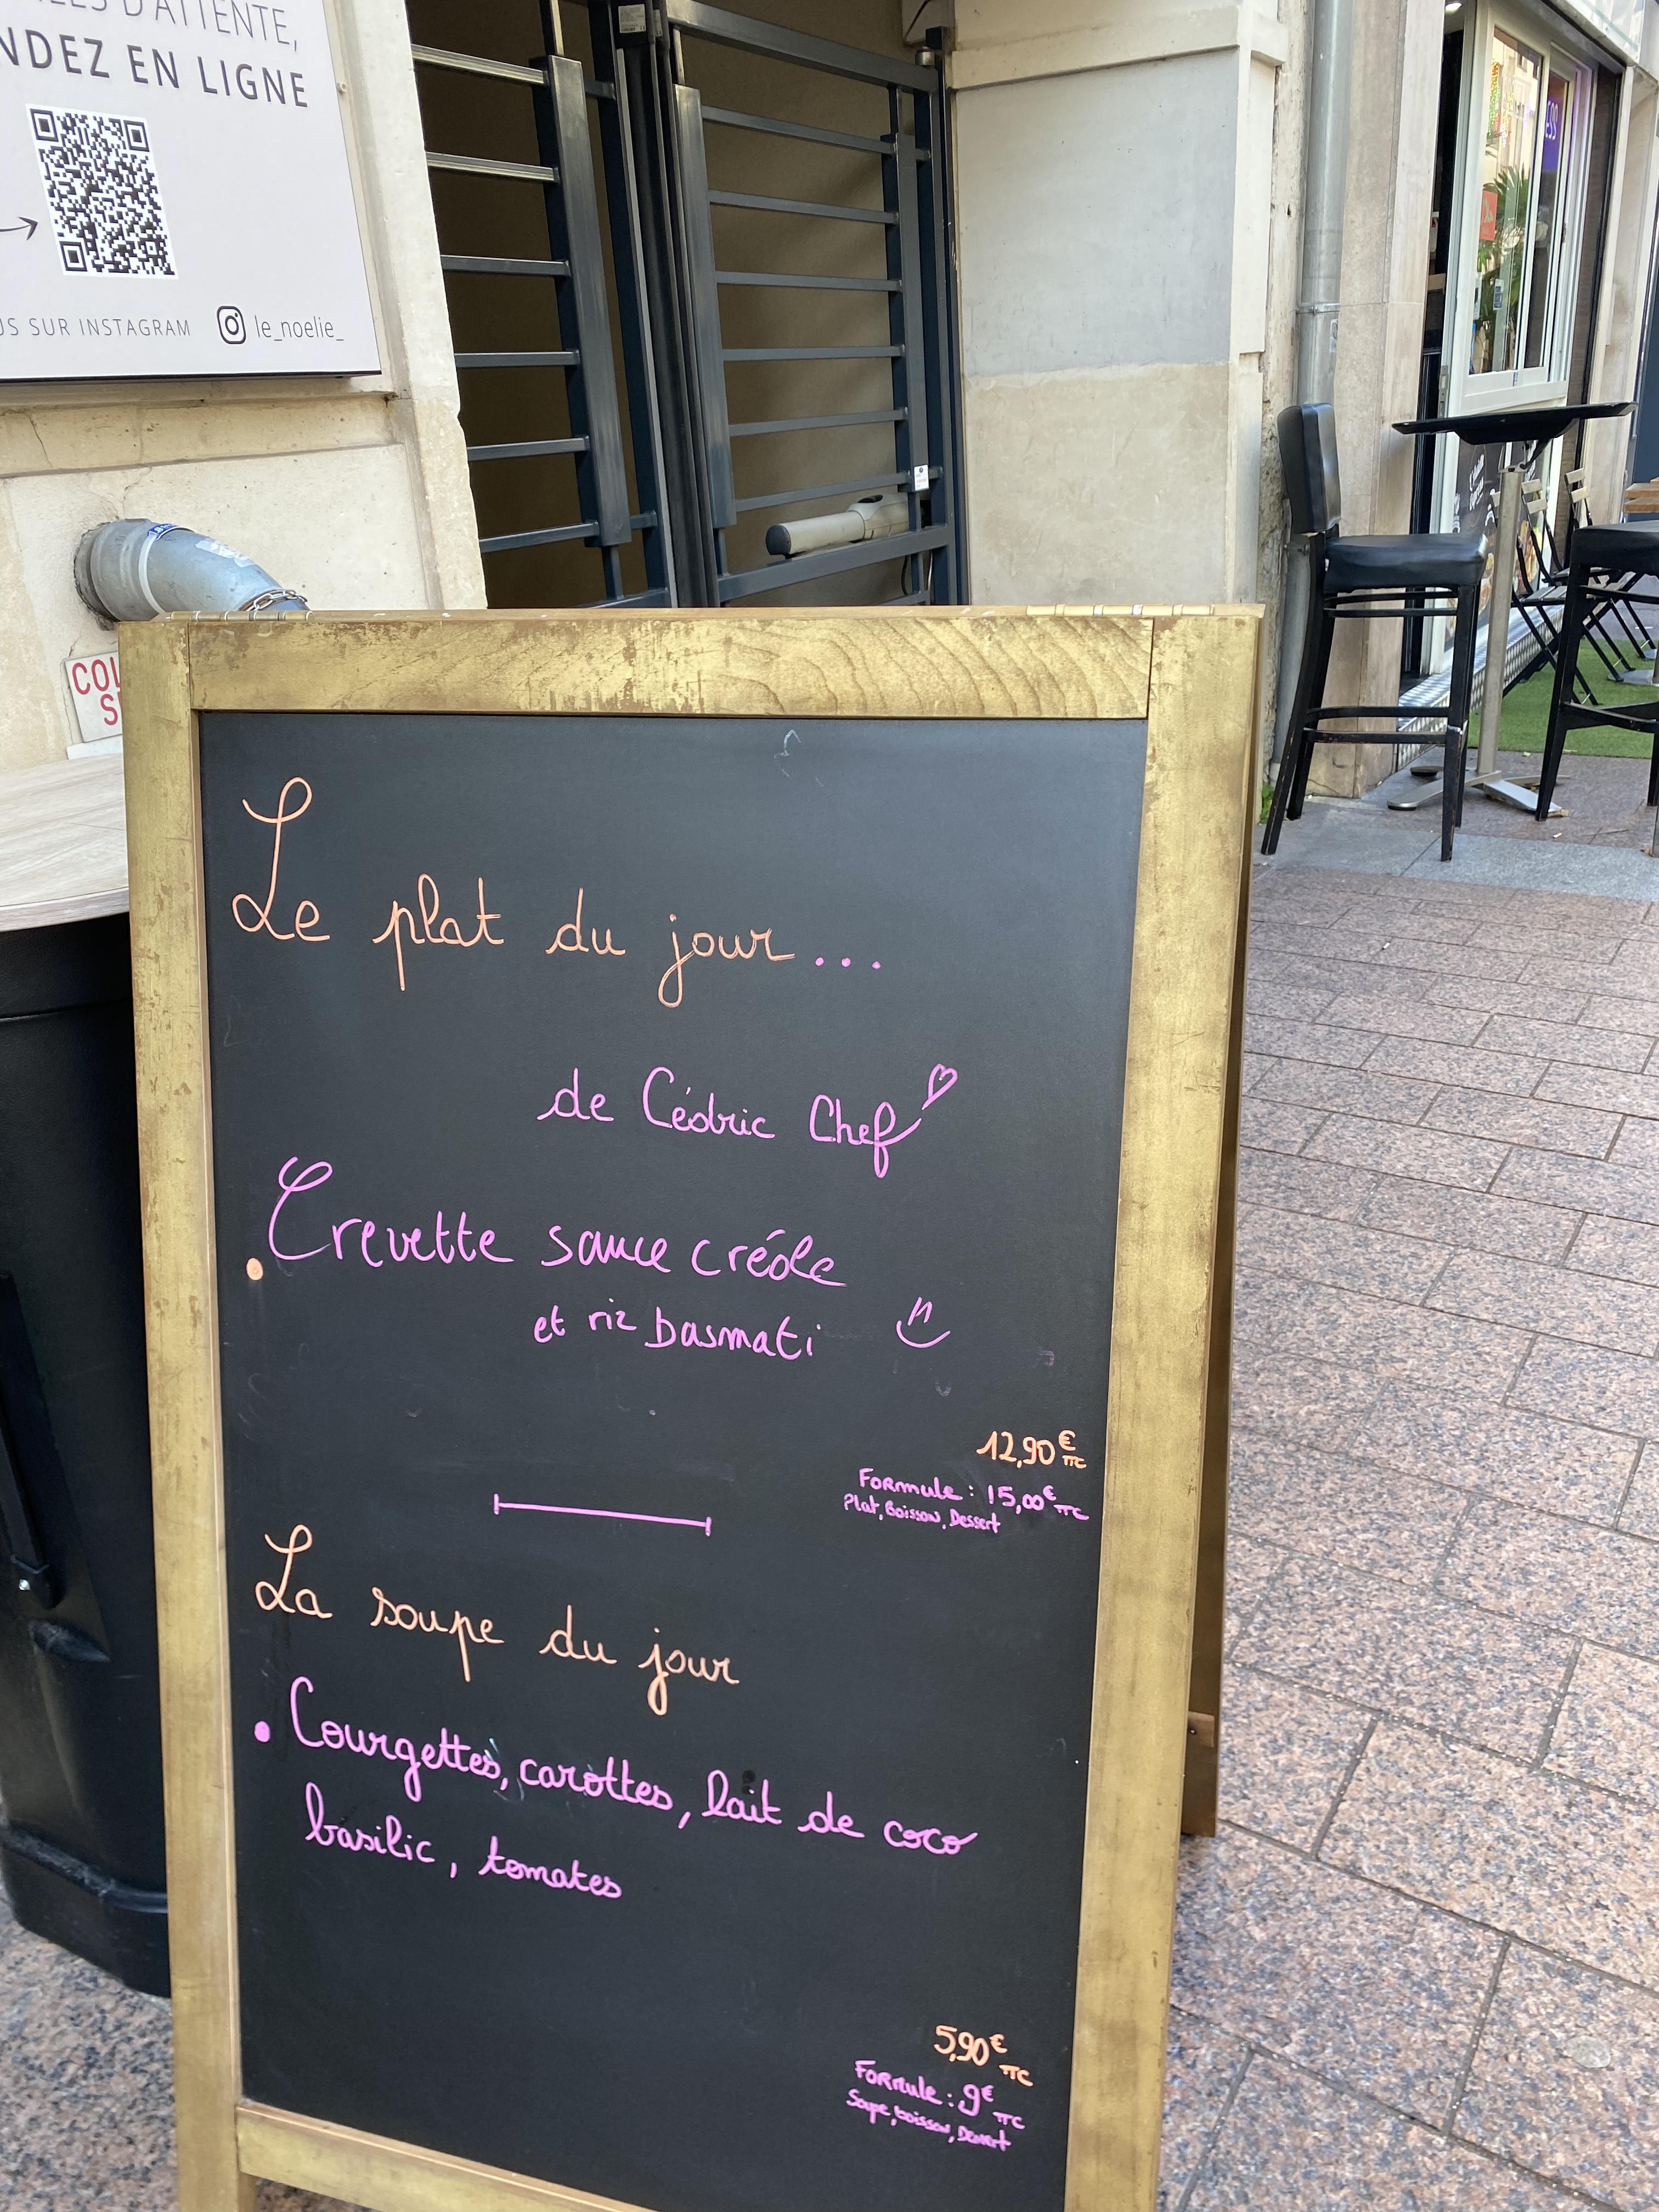 D'ATTENTE,
NDEZ EN LIGNE
US SUR INSTAGRAM le_noelie_
COL
S
Le plat du jour...
de Cédric Chef
Crevette sauce créole
et riz basmati
12,90€ TTC
Formule : 15,00€ TTC
Plat, Boisson, Dessert
La soupe du jour
Courgettes, carottes, lait de coco
basilic, tomates
5,90€ TTC
Formule : 9€ TTC
Soupe, boisson, Dessert